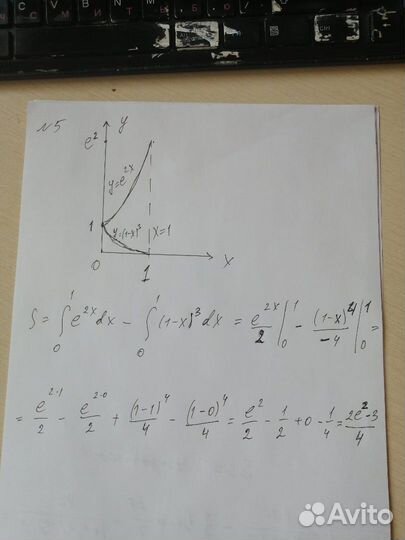 №5
y
e²
y=e^{2x}
1
y=(1-x)³
x=1
0
1
x
S = ∫₀¹ e^{2x}dx - ∫₀¹ (1-x)³dx = e^{2x}/2 |₀¹ - (1-x)⁴/-4 |₀¹ =
= e^{2·1}/2 - e^{2·0}/2 + (1-1)⁴/4 - (1-0)⁴/4 = e²/2 - 1/2 + 0 - 1/4 = 2e²-3/4
Avito